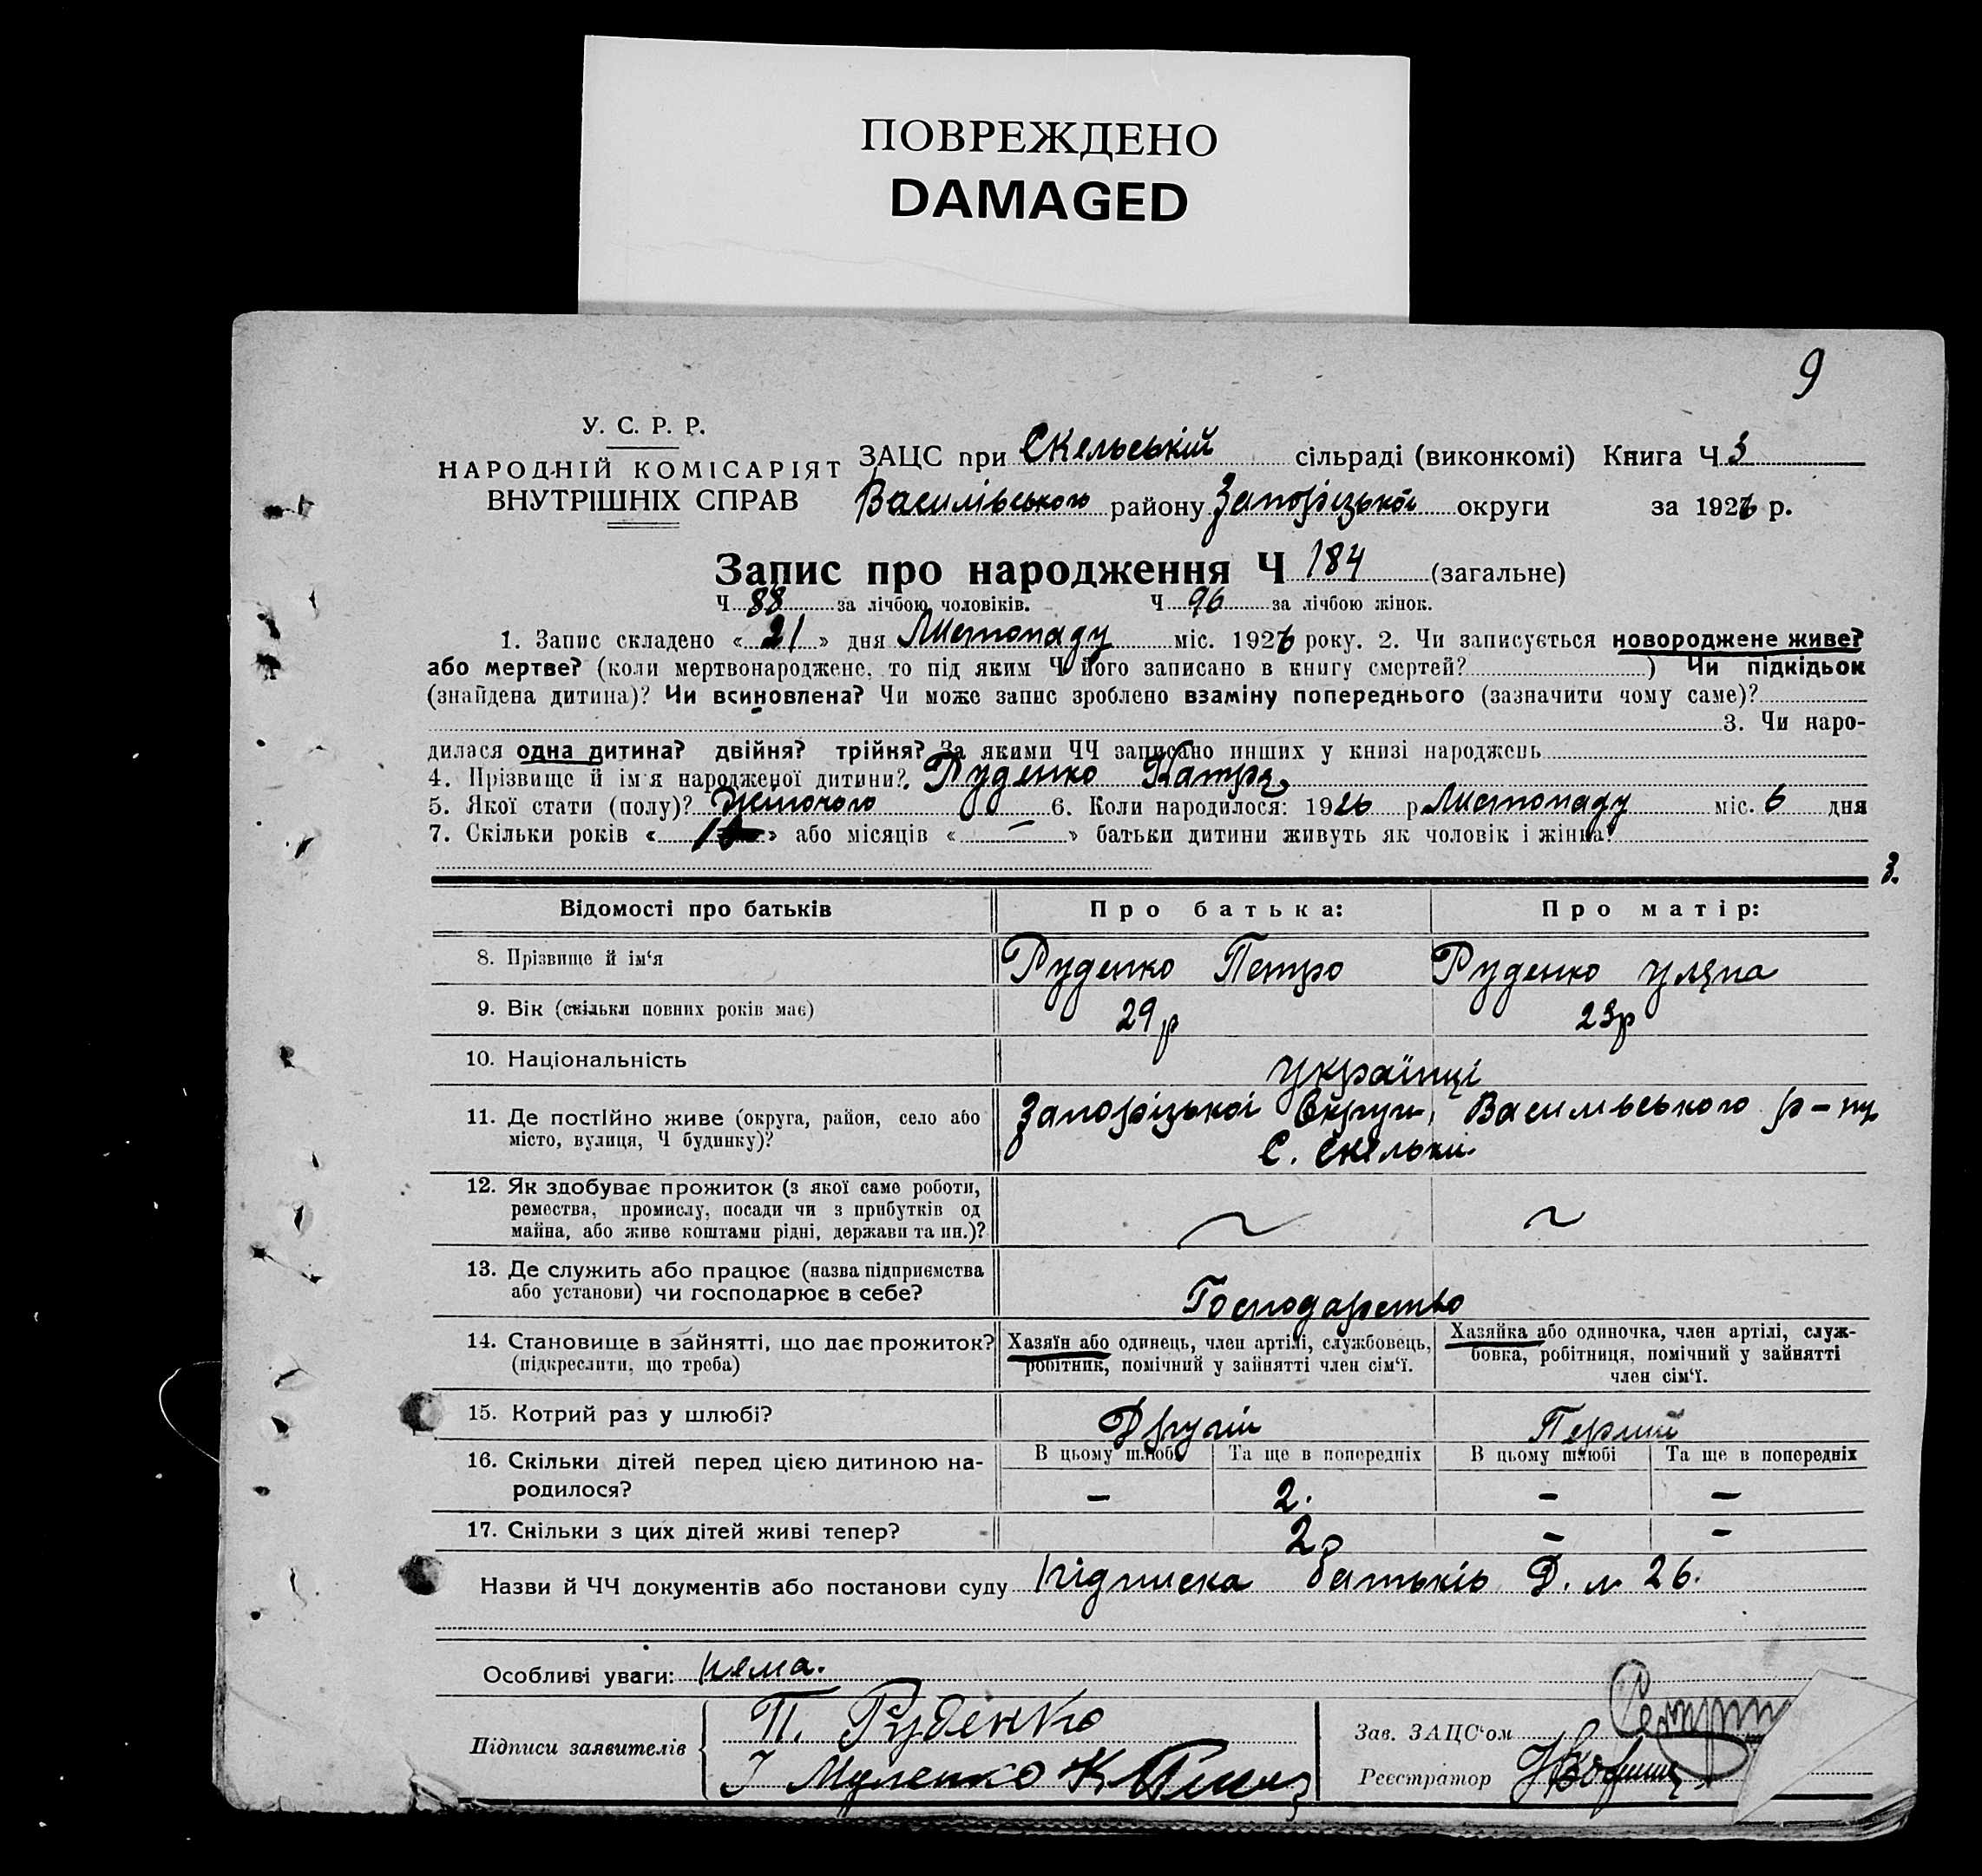 ПОВРЕЖДЕНО
DAMAGED
9
У. С. Р. Р.
НАРОДНІЙ КОМІСАРІЯТ
ВНУТРІШНІХ СПРАВ
ЗАЦС при Скельській сільраді (виконкомі) Книга Ч 3
Василівського району Запорізької округи за 1926 р.
Запис про народження Ч 184 (загальне)
Ч 88 за лічбою чоловіків. Ч 96 за лічбою жінок.
1. Запис складено « 21 » дня Листопаду міс. 1926 року. 2. Чи записується новороджене живе?
або мертве? (коли мертвонароджене, то під яким Ч його записано в книгу смертей? ) Чи підкідьок
(знайдена дитина)? Чи всиновлена? Чи може запис зроблено взаміну попереднього (зазначити чому саме)?
3. Чи наро-
дилася одна дитина? двійня? трійня? За якими ЧЧ записано инших у книзі народжень
4. Прізвище й ім'я народженої дитини? Руденко Катря
5. Якої стати (полу)? Жіночого 6. Коли народилося: 1926 р Листопаду міс. 6 дня
7. Скільки років « » або місяців « — » батьки дитини живуть як чоловік і жінка?
3.
Відомості про батьків Про батька: Про матір:
8. Прізвище й ім‘я Руденко Петро Руденко Уляна
9. Вік (скільки повних років має) 29 р 23 р
10. Національність Українці
11. Де постійно живе (округа, район, село або Запорізької Округи, Васильвського р-ну
місто, вулиця, Ч будинку)? С. Скельки
12. Як здобуває прожиток (з якої саме роботи,
ремества, промислу, посади чи з прибутків од
майна, або живе коштами рідні, держави та ин.)? ~ ~
13. Де служить або працює (назва підприємства
або установи) чи господарює в себе? Господарство
14. Становище в зайнятті, що дає прожиток? Хазяїн або одинець, член артілі, службовець, Хазяйка або одиночка, член артілі, служ-
(підкреслити, що треба) робітник, помічний у зайнятті член сім‘ї. бовка, робітниця, помічний у зайнятті
член сім‘ї.
15. Котрий раз у шлюбі? Другий Перший
16. Скільки дітей перед цією дитиною на- В цьому шлюбі Та ще в попередніх В цьому шлюбі Та ще в попередніх
родилося? — 2. — —
17. Скільки з цих дітей живі тепер? 2 — —
Назви й ЧЧ документів або постанови суду Підписка батьків Д. л. 26.
Особливі уваги: нема.
Підписи заявителів П. Руденко Зав. ЗАЦС‘ом
Реєстратор